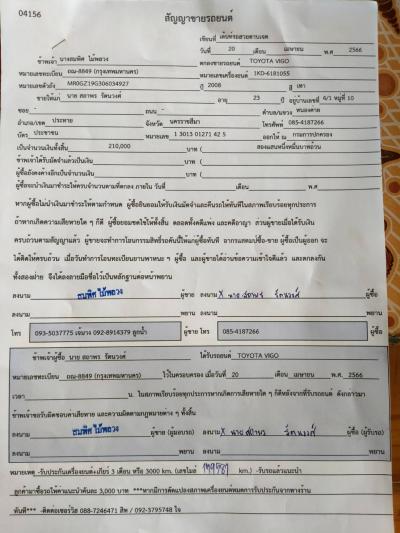 04156
สัญญาขายรถยนต์
เขียนที่ เต็นท์รถสวยตานเจต
วันที่ 20 เดือน เมษายน พ.ศ. 2566
ข้าพเจ้า นางสมพิศ ไม้พลวง ตกลงขายรถยนต์ TOYOTA VIGO
หมายเลขทะเบียน ฌฌ-8849 (กรุงเทพมหานคร) หมายเลขเครื่องยนต์ 1KD-6181055
หมายเลขตัวถัง MR0GZ19G306034927 ปี 2008 สี เทา
ขายให้แก่ นาย สถาพร รัตนวงศ์ อายุ 23 ปี อยู่บ้านเลขที่ 4/1 หมู่ที่ 10
ซอย - ถนน - ตำบล/แขวง หนองค่าย
อำเภอ/เขต ประทาย จังหวัด นครราชสีมา โทรศัพท์ 085-4187266
บัตร ประชาชน หมายเลข 1 3013 01271 42 5 ออกให้ ณ กรมการปกครอง
เป็นจำนวนเงินทั้งสิ้น 210,000 บาท ( สองแสนหนึ่งหมื่นบาทถ้วน
ข้าพเจ้าได้รับมัดจำแล้วเป็นเงิน บาท (
ผู้ซื้อยังคงค้างอีกเป็นจำนวนเงิน บาท (
ผู้ซื้อจะนำเงินมาชำระให้ครบจำนวนตามที่ตกลง ภายใน วันที่ เดือน พ.ศ.
หากผู้ซื้อไม่นำเงินมาชำระให้ตามกำหนด ผู้ซื้อยินยอมให้ริบเงินมัดจำและคืนรถให้ทันทีในสภาพเรียบร้อยทุกประการ
ถ้าหากเกิดความเสียหายใด ๆ ก็ดี ผู้ซื้อยอมชดใช้ให้ทั้งสิ้น ตลอดทั้งคดีแพ่ง และคดีอาญา ส่วนผู้ขายเมื่อได้รับเงิน
ครบถ้วนตามสัญญาแล้ว ผู้ขายจะทำการโอนกรรมสิทธิ์รถคันนี้ให้แก่ผู้ซื้อทันที อากรแสตมป์ซื้อ-ขาย ผู้ซื้อเป็นผู้ออก จะ
ได้ติดให้ครบถ้วน เมื่อวันทำการโอนทะเบียนยานพาหนะ ฯ ผู้ซื้อ และผู้ขายได้อ่านข้อความเข้าใจดีแล้ว และตกลงกัน
ทั้งสองฝ่าย จึงได้ลงลายมือชื่อไว้เป็นหลักฐานต่อหน้าพยาน
ลงนาม สมพิศ ไม้พลวง ผู้ขาย ลงนาม X นาย สถาพร รัตนวงศ์ ผู้ซื้อ
ลงนาม พยาน ลงนาม พยาน
โทร 093-5037775 092-8914379 ลูกน้ำ ผู้ขาย โทร 085-4187266 ผู้ซื้อ
ข้าพเจ้าผู้ซื้อ นาย สถาพร รัตนวงศ์ ได้รับรถยนต์ TOYOTA VIGO
หมายเลขทะเบียน ฌฌ-8849 (กรุงเทพมหานคร) ไว้ในครอบครอง เมื่อวันที่ 20 เดือน เมษายน พ.ศ. 2566
เวลา น. ในสภาพเรียบร้อยทุกประการหากเกิดการเสียหายใด ๆ ก็ดีหลังจากที่รับรถยนต์ ดังกล่าวมา
ข้าพเจ้าขอรับผิดชอบค่าเสียหาย และความผิดตามกฎหมายต่าง ๆ ทั้งสิ้น
ลงนาม สมพิศ ไม้พลวง ผู้ขาย (ผู้มอบรถ) ลงนาม X นาย สถาพร รัตนวงศ์ ผู้ซื้อ (ผู้รับรถ)
ลงนาม พยาน ลงนาม พยาน
หมายเหตุ -รับประกันเครื่องยนต์+เกียร์ 3 เดือน หรือ 3000 km. (เลขไมล์ km.) -รับรถแล้วแนะนำ
ลูกค้ามาซื้อรถให้ค่าแนะนำคันละ 3,000 บาท ***หากมีการดัดแปลงสภาพเครื่องยนต์หมดการรับประกันจากทางร้าน
ทันที*** -ติดต่อเซอร์วิส 088-7246471 สิท / 092-3795748 โจ